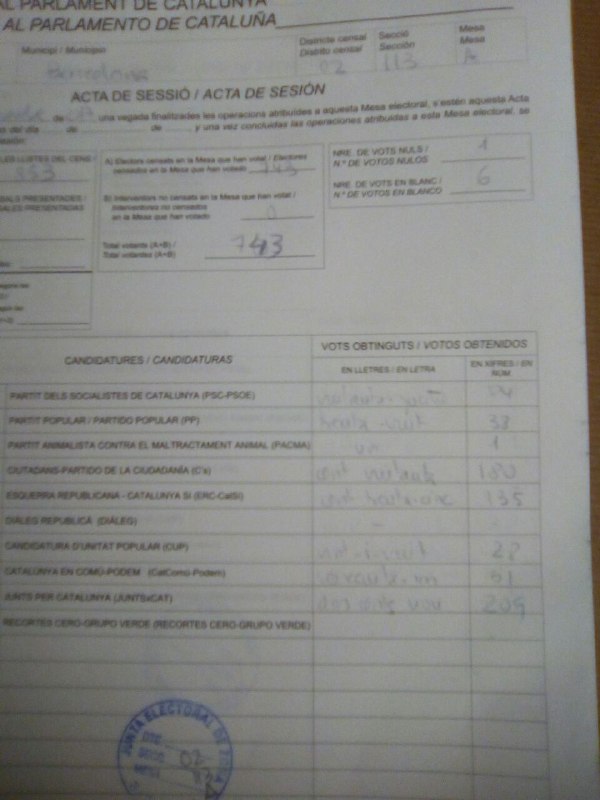 AL PARLAMENT DE CATALUNYA
AL PARLAMENTO DE CATALUÑA
Municipi / Municipio
Districte censal
Distrito censal
Secció
Sección
Mesa
Mesa
Barcelona
02
113
A
ACTA DE SESSIÓ / ACTA DE SESIÓN
de una vegada finalitzades les operacions atribuïdes a aquesta Mesa electoral, s'estén aquesta Acta
del día de de y una vez concluidas las operaciones atribuidas a esta Mesa electoral, se
LES LLISTES DEL CENS
A) Electors censats en la Mesa que han votat / Electores
censados en la Mesa que han votado 743
B) Interventors no censats en la Mesa que han votat /
Interventores no censados
en la Mesa que han votado 0
Total votants (A+B) /
Total votantes (A+B)
743
NRE. DE VOTS NULS /
N.º DE VOTOS NULOS
1
NRE. DE VOTS EN BLANC /
N.º DE VOTOS EN BLANCO
6
CANDIDATURES / CANDIDATURAS
VOTS OBTINGUTS / VOTOS OBTENIDOS
EN LLETRES / EN LETRA
EN XIFRES / EN NÚM.
PARTIT DELS SOCIALISTES DE CATALUNYA (PSC-PSOE)
PARTIT POPULAR / PARTIDO POPULAR (PP) trenta-vuit 38
PARTIT ANIMALISTA CONTRA EL MALTRACTAMENT ANIMAL (PACMA) un 1
CIUTADANS-PARTIDO DE LA CIUDADANÍA (C's) cent vuitanta 180
ESQUERRA REPUBLICANA - CATALUNYA SÍ (ERC-CatSí) cent trenta-cinc 135
DIÀLEG REPUBLICÀ (DIÀLEG) -
CANDIDATURA D'UNITAT POPULAR (CUP) vint-i-vuit 28
CATALUNYA EN COMÚ-PODEM (CatComú-Podem)
JUNTS PER CATALUNYA (JUNTSxCAT) dos cents nou 209
RECORTES CERO-GRUPO VERDE (RECORTES CERO-GRUPO VERDE)
JUNTA ELECTORAL DE ZONA
02